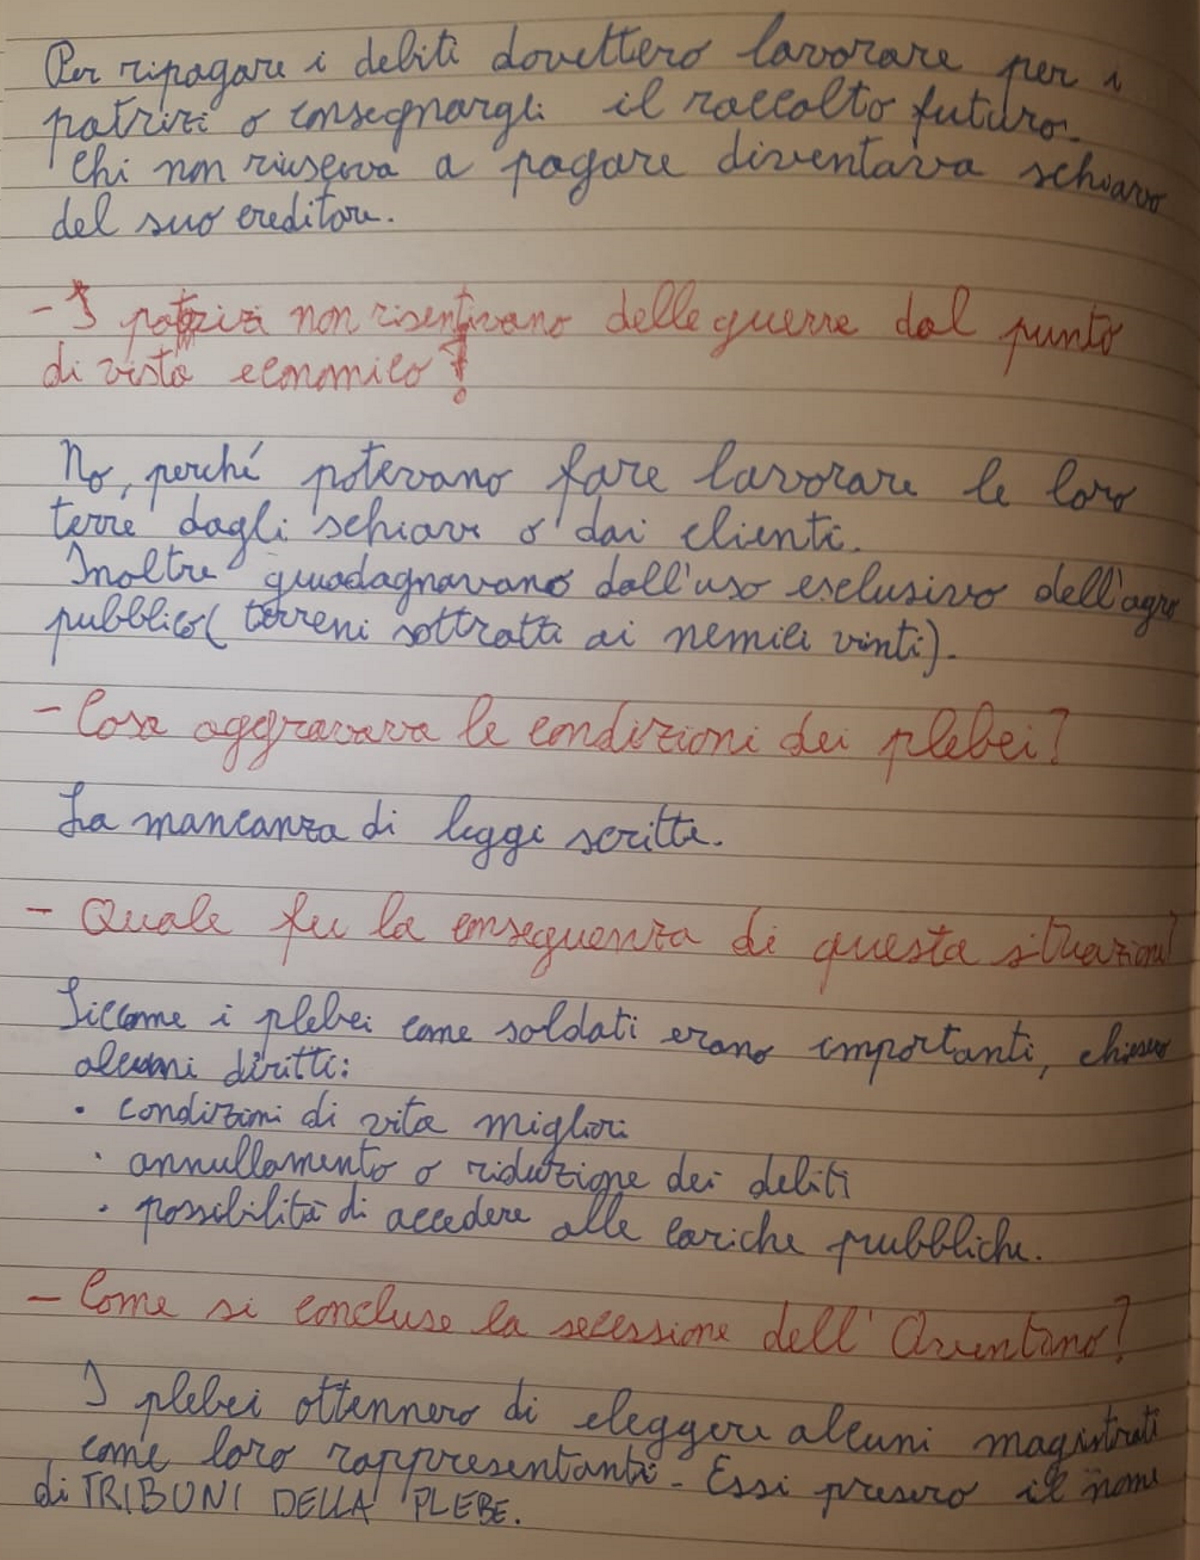 Per ripagare i debiti dovettero lavorare per i
patrizi o consegnargli il raccolto futuro.
Chi non riusciva a pagare diventava schiavo
del suo creditore.
- I patrizi non risentivano delle guerre dal punto
di vista economico?
No, perché potevano fare lavorare le loro
terre dagli schiavi o dai clienti.
Inoltre guadagnavano dall'uso esclusivo dell'agro
pubblico (terreni sottratti ai nemici vinti).
- Cosa aggravava le condizioni dei plebei?
La mancanza di leggi scritte.
- Quale fu la conseguenza di questa situazione?
Siccome i plebei come soldati erano importanti, chiesero
alcuni diritti:
• condizioni di vita migliori
• annullamento o riduzione dei debiti
• possibilità di accedere alle cariche pubbliche.
- Come si concluse la secessione dell'Aventino?
I plebei ottennero di eleggere alcuni magistrati
come loro rappresentanti. Essi presero il nome
di TRIBUNI DELLA PLEBE.